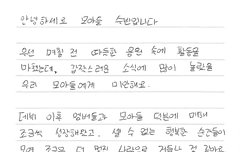 안녕하세요 모아들 수빈입니다
우선 며칠 전 따듯한 응원 속에 활동을
마쳤는데, 갑작스러운 소식에 많이 놀랐을
우리 모아들에게 미안해요.
데뷔 이후 멤버들과 모아들 덕분에 매해
조금씩 성장해왔고, 셀 수 없는 행복한 순간들이
모여 조금은 더 멋진 사람으로 거듭난 것 같아요